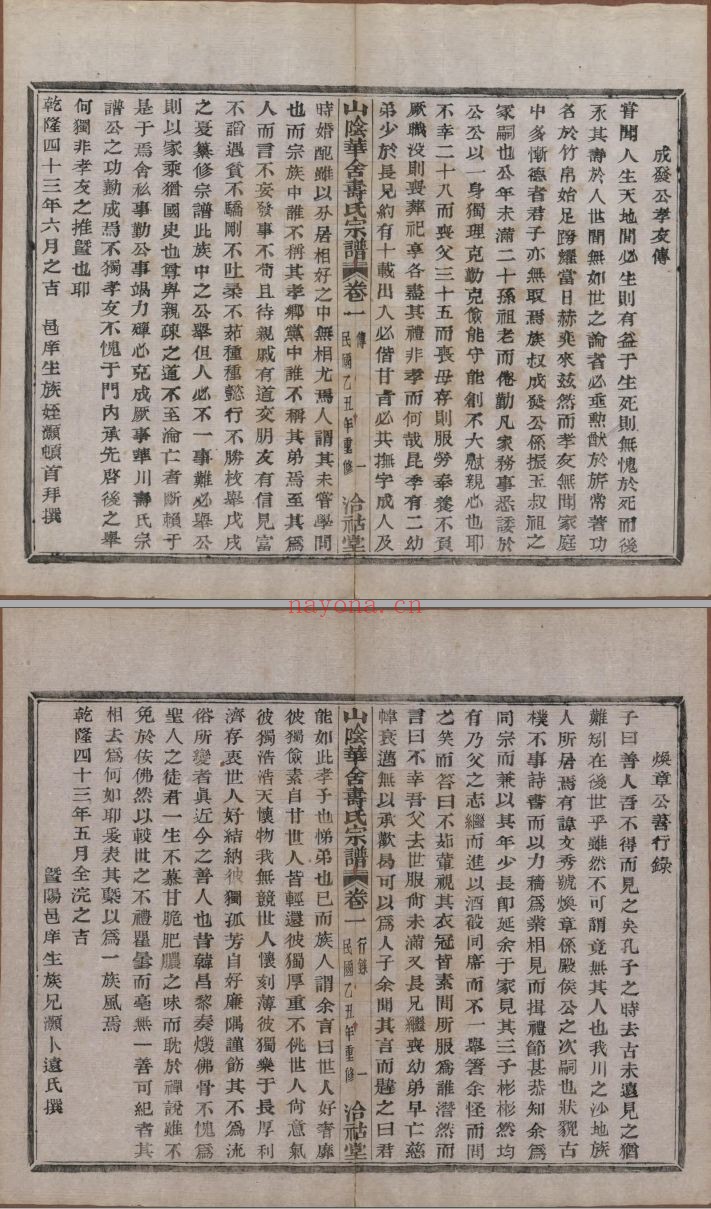 成發公孝友傳
嘗聞人生天地間必生則有益于生死則無愧於死而後
永其壽於人世間無如世之論者必垂勲猷於旂常著功
名於竹帛始足誇耀當日赫奕來兹然而孝友無聞家庭
中多慚德者君子亦無取焉族叔成發公係振玉叔祖之
冢嗣也公年未滿二十孫祖老而倦勤凡家務事悉諉於
公公以一身獨理克勤克儉能守能創不大慰親心也耶
不幸二十八而喪父三十五而喪母存則服勞奉養不負
厥職沒則喪葬祀享各盡其禮非孝而何哉昆季有二幼
弟少於長兄約有十載出入必偕甘旨必共撫字成人及
山陰華舍壽氏宗譜 卷一 傳 民國乙丑年重修 一 洽祜堂
時婚配雖以分居相好之中無相尤焉人謂其未嘗學問
也而宗族中誰不稱其孝鄉黨中誰不稱其弟焉至其爲
人而言不妄發事不苟且待親戚有道交朋友有信見富
不謟遇貧不驕剛不吐柔不茹種種懿行不勝枚舉戊戌
之夏纂修宗譜此族中之公舉但人必不一事難必舉公
則以家乘猶國史也尊卑親疎之道不至淪亡者斷賴于
是于焉舍私事勤公事竭力殫心克成厥事華川壽氏宗
譜公之功勤成焉不獨孝友不愧于門内承先啓後之舉
何獨非孝友之推曁也耶
乾隆四十三年六月之吉 邑庠生族姪灝頓首拜撰
nayona.cn
煥章公善行錄
子曰善人吾不得而見之矣孔子之時去古未遠見之猶
難矧在後世乎雖然不可謂竟無其人也我川之沙地族
人所居焉有諱文秀號煥章係殿侯公之次嗣也狀貌古
樸不事詩書而以力穡爲業相見而揖禮節甚恭知余爲
同宗而兼以其年少長卽延余于家見其三子彬彬然均
有乃父之志繼而進以酒殽同席而不一舉箸余怪而問
之笑而答曰不茹葷視其衣冠皆素問所服爲誰潸然而
言曰不幸吾父去世服尚未滿又長兄繼喪幼弟早亡慈
幃衰邁無以承歡曷可以爲人子余聞其言而韙之曰君
山陰華舍壽氏宗譜 卷一 行錄 民國乙丑年重修 一 洽祜堂
能如此孝子也悌弟也已而族人謂余言曰世人好奢靡
彼獨儉素自甘世人皆輕還彼獨厚重不佻世人尚意氣
彼獨浩浩天懷物我無競世人懷刻薄彼獨樂于長厚利
濟存衷世人好結納彼獨孤芳自好廉隅謹飭其不爲流
俗所變者眞近今之善人也昔韓昌黎奏燬佛骨不愧爲
聖人之徒君一生不慕甘脆肥膿之味而耽於禪說雖不
免於佞佛然以較世之不禮瞿曇而毫無一善可紀者其
相去爲何如耶爰表其槩以爲一族風焉
乾隆四十三年五月全浣之吉
曁陽邑庠生族兄灝卜遠氏撰